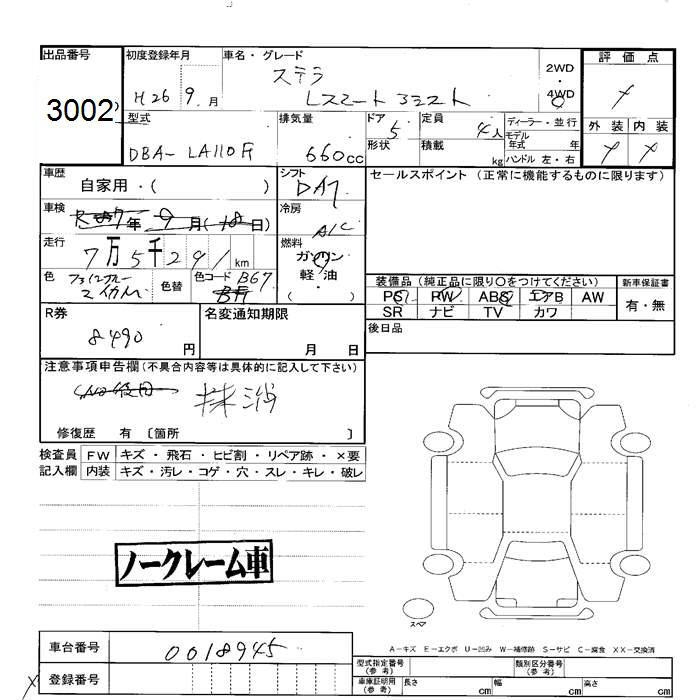 出品番号 初度登録年月 車名・グレード 評価点
3002 H26 9月 ステラ 2WD・4WD
型式 排気量 ドア 5 定員 4人 ディーラー・並行 外装 内装
形状 積載 kg モデル年式 年
DBA-LA110F 660cc ハンドル 左・右
車歴 シフト セールスポイント (正常に機能するものに限ります)
自家用・( )
車検 年 9月(18日) 冷房 A/C
走行 7万5千291km 燃料 ガソリン
軽油
( )
色 色替 色コード B67 装備品(純正品に限り○をつけてください) 新車保証書
PS PW ABS エアB AW 有・無
SR ナビ TV カワ
R券 名変通知期限 後日品
8490円 月 日
注意事項申告欄(不具合内容等は具体的に記入して下さい)
抹消
修復歴 有 〔箇所 〕
検査員 FW キズ・飛石・ヒビ割・リペア跡・×要
記入欄 内装 キズ・汚レ・コゲ・穴・スレ・キレ・破レ
ノークレーム車
スペア
A-キズ E-エクボ U-凹み W-補修跡 S-サビ C-腐食 XX-交換済
車台番号 0018945 型式指定番号(参考) 類別区分番号(参考)
登録番号 車庫証明用(参考) 長さ cm 幅 cm 高さ cm